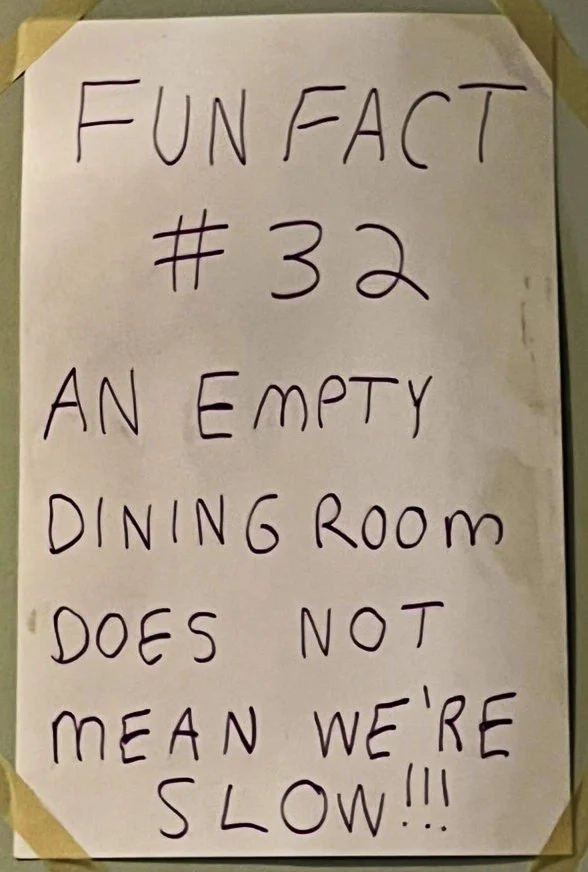 FUN FACT
# 32
AN EMPTY
DINING ROOM
DOES NOT
MEAN WE'RE
SLOW!!!